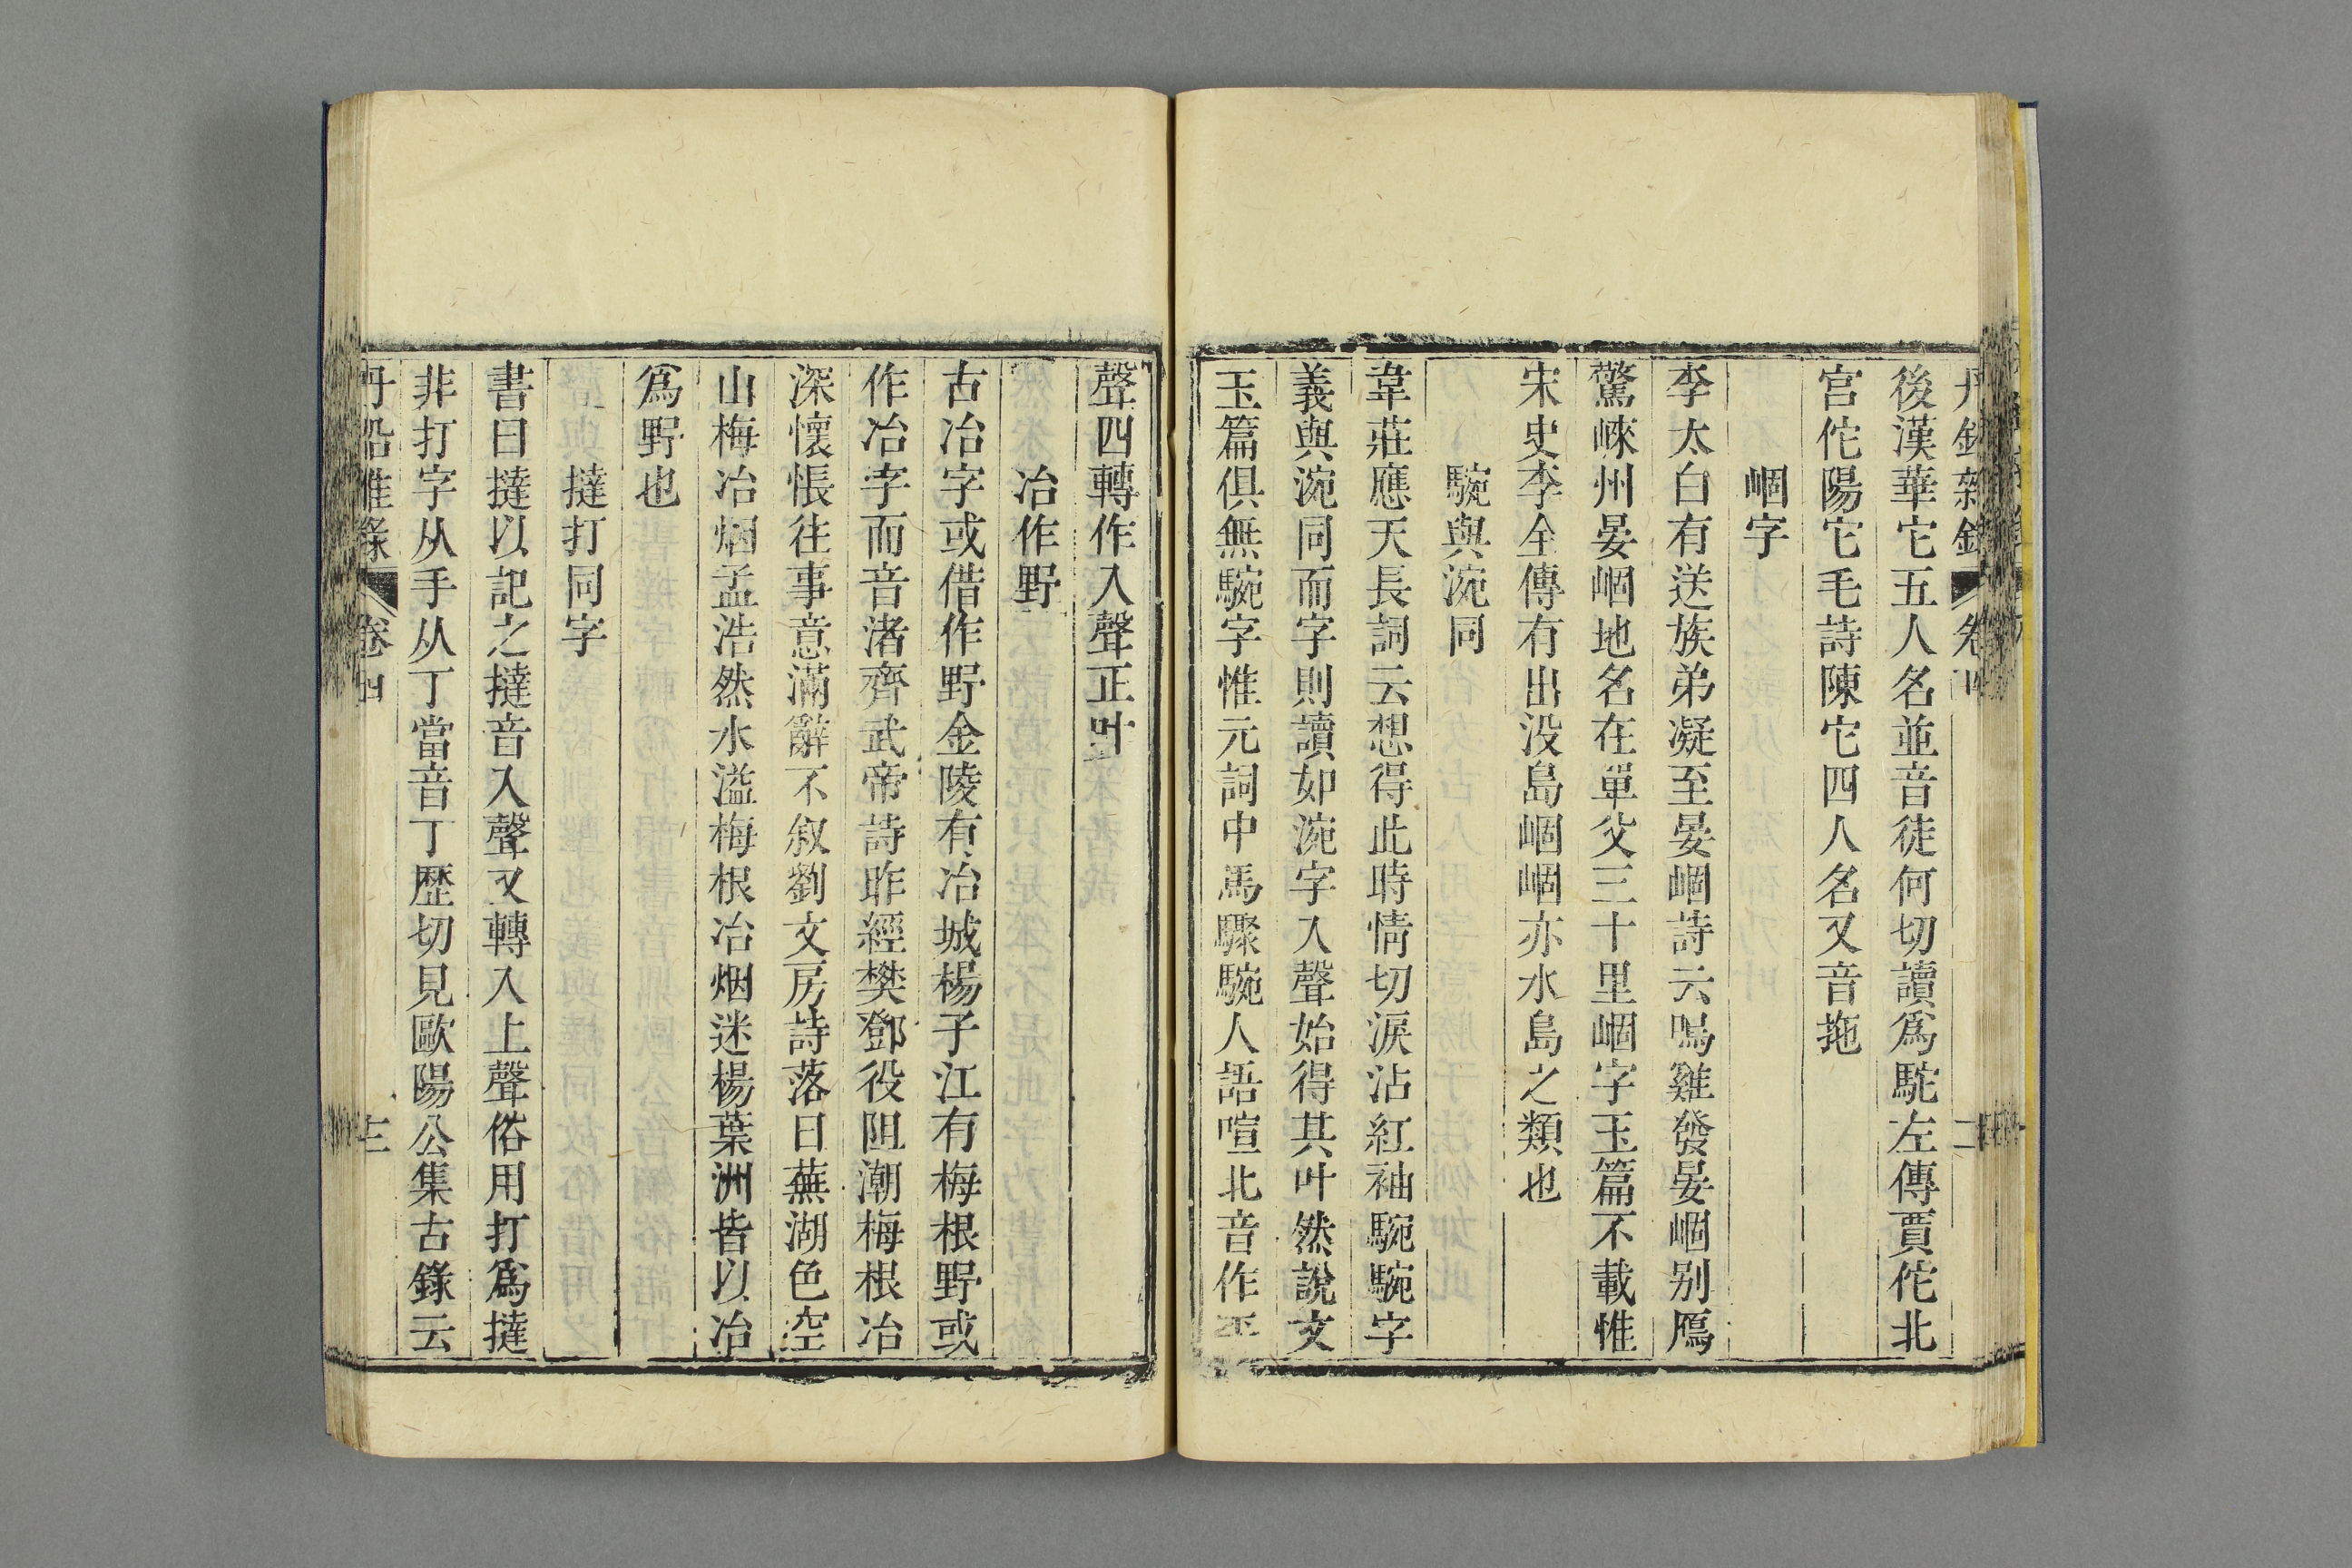 丹鉛雜錄 卷四 二
後漢華它五人名並音徒何切讀爲駝左傳賈佗北
宫佗陽它毛詩陳它四人名又音拖
崓字
李太白有送族弟凝至晏崓詩云鳴雞發晏崓别鴈
驚崍州晏崓地名在單父三十里崓字玉篇不載惟
宋史李全傳有出没島崓崓亦水島之類也
䯛與涴同
韋莊應天長詞云想得此時情切淚沾紅袖䵫䵫字
義與涴同而字則讀如涴字入聲始得其叶然說文
玉篇俱無䵫字惟元詞中馬驟䵫人語喧北音作平
聲四轉作入聲正叶
冶作野
古冶字或借作野金陵有冶城楊子江有梅根野或
作冶字而音渚齊武帝詩昨經樊鄧役阻潮梅根冶
深懷悵往事意滿辭不叙劉文房詩落日蕪湖色空
山梅冶烟孟浩然水溢梅根冶烟迷楊葉洲皆以冶
爲野也
撻打同字
書曰撻以記之撻音入聲又轉入上聲俗用打爲撻
非打字从手从丁當音丁歷切見歐陽公集古錄云
丹鉛雜錄 卷四 三